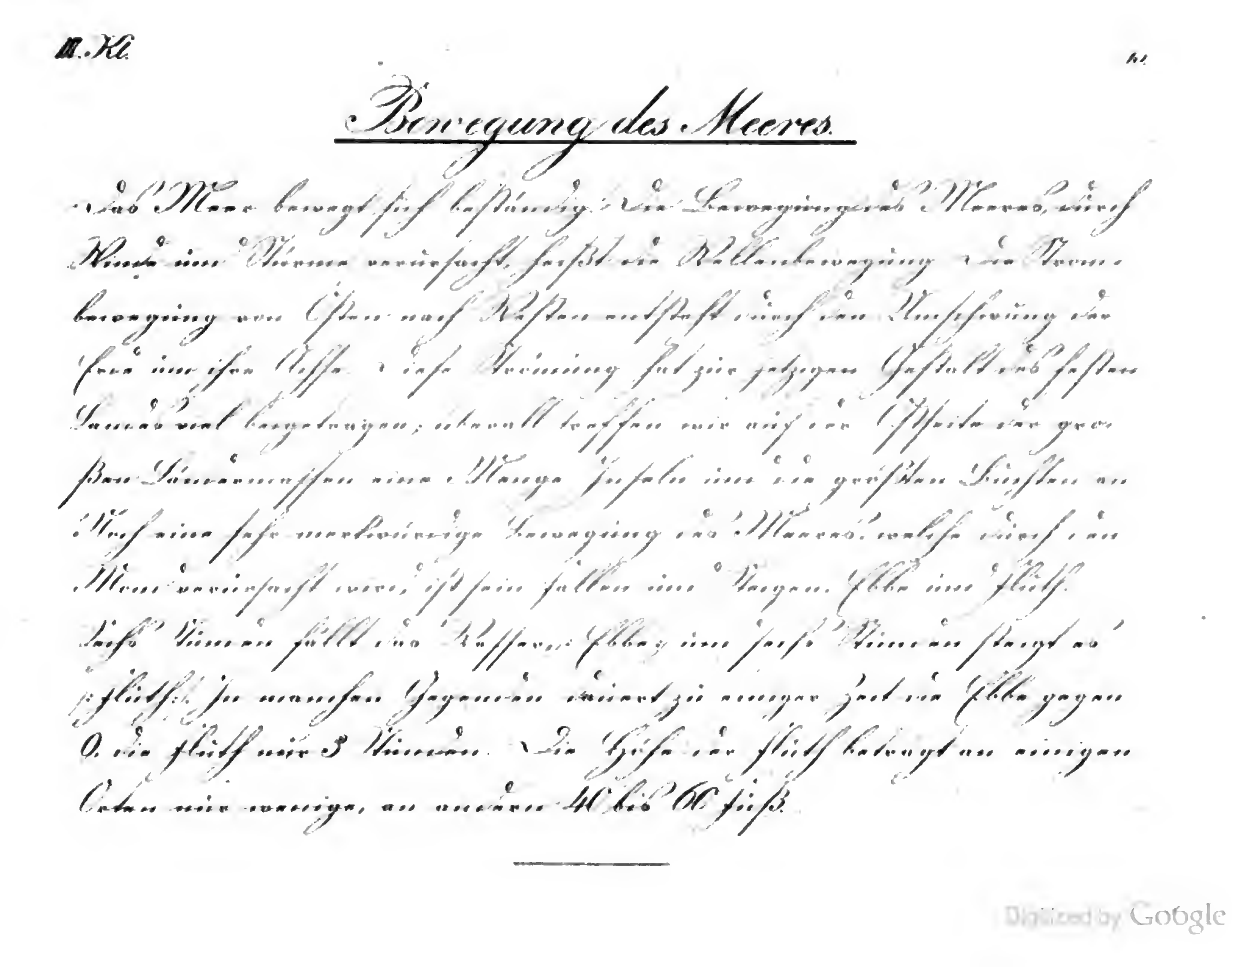 III. Kl.
Bewegung des Meeres.
Das Meer bewegt sich beständig. Die Bewegung des Meeres, durch
Winde und Stürme verursacht, heißt die Wellenbewegung. Die Strom-
bewegung von Osten nach Westen entsteht durch den Umschwung der
Erde um ihre Achse. Diese Strömung hat zur jetzigen Gestalt des festen
Landes viel beigetragen; überall treffen wir auf der Ostseite der gro-
ßen Ländermassen eine Menge Inseln und die größten Buchten an.
Noch eine sehr merkwürdige Bewegung des Meeres, welche durch den
Mond verursacht wird, ist sein Fallen und Steigen, Ebbe und Fluth.
Sechs Stunden fällt das Wasser Ebbe; und sechs Stunden steigt es
Fluth. In manchen Gegenden dauert zu einiger Zeit die Ebbe gegen
die Fluth nur 3 Stunden. Die Höhe der Fluth beträgt an einigen
Orten nur wenige, an andern 40 bis 60 Fuß.
Digitized by Google